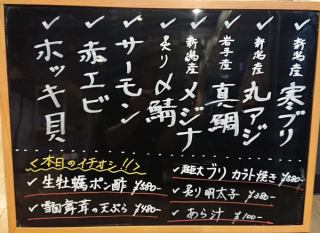 ✓新潟産 寒ブリ
✓新潟産 丸アジ
✓岩手産 真鯛
✓新潟産 メジナ
✓炙り〆鯖
✓サーモン
✓赤エビ
✓ホッキ貝
＜本日のイチオシ!!＞
✓生牡蠣ポン酢 ¥580-
✓舞茸の天ぷら ¥480-
✓ブリカラト焼き
✓炙り明太子 ¥380-
✓あら汁 ¥100-